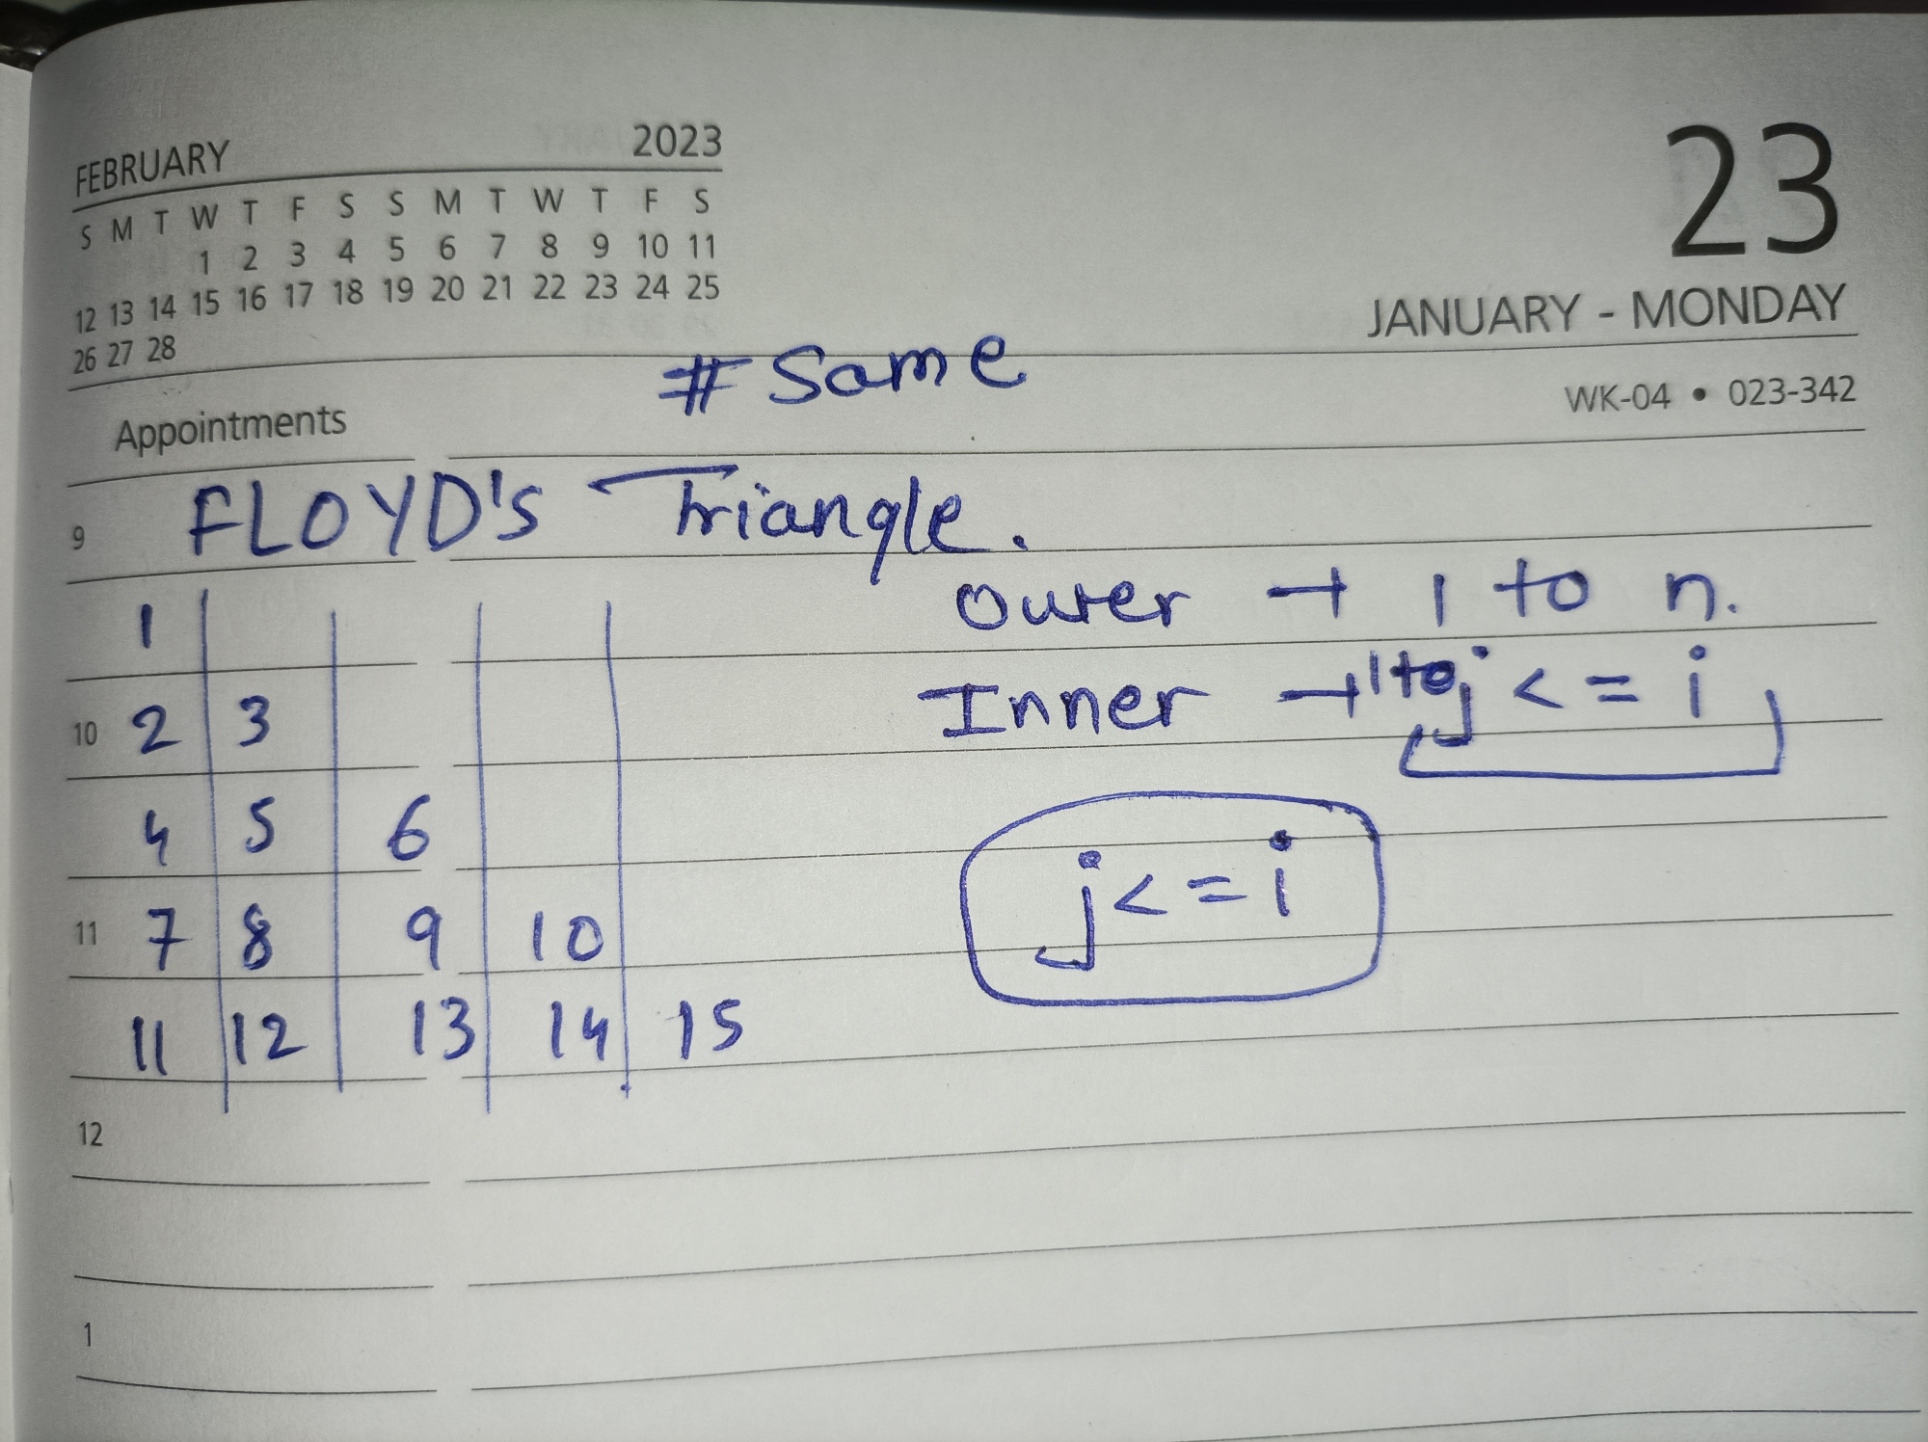 FEBRUARY 2023
S M T W T F S S M T W T F S
1 2 3 4 5 6 7 8 9 10 11
12 13 14 15 16 17 18 19 20 21 22 23 24 25
26 27 28
23
JANUARY - MONDAY
WK-04 • 023-342
# Same
Appointments
9 FLOYD's Triangle.
1
10 2 3
4 5 6
11 7 8 9 10
11 12 13 14 15
12
1
Outer → 1 to n.
Inner → 1 to j <= i
j <= i